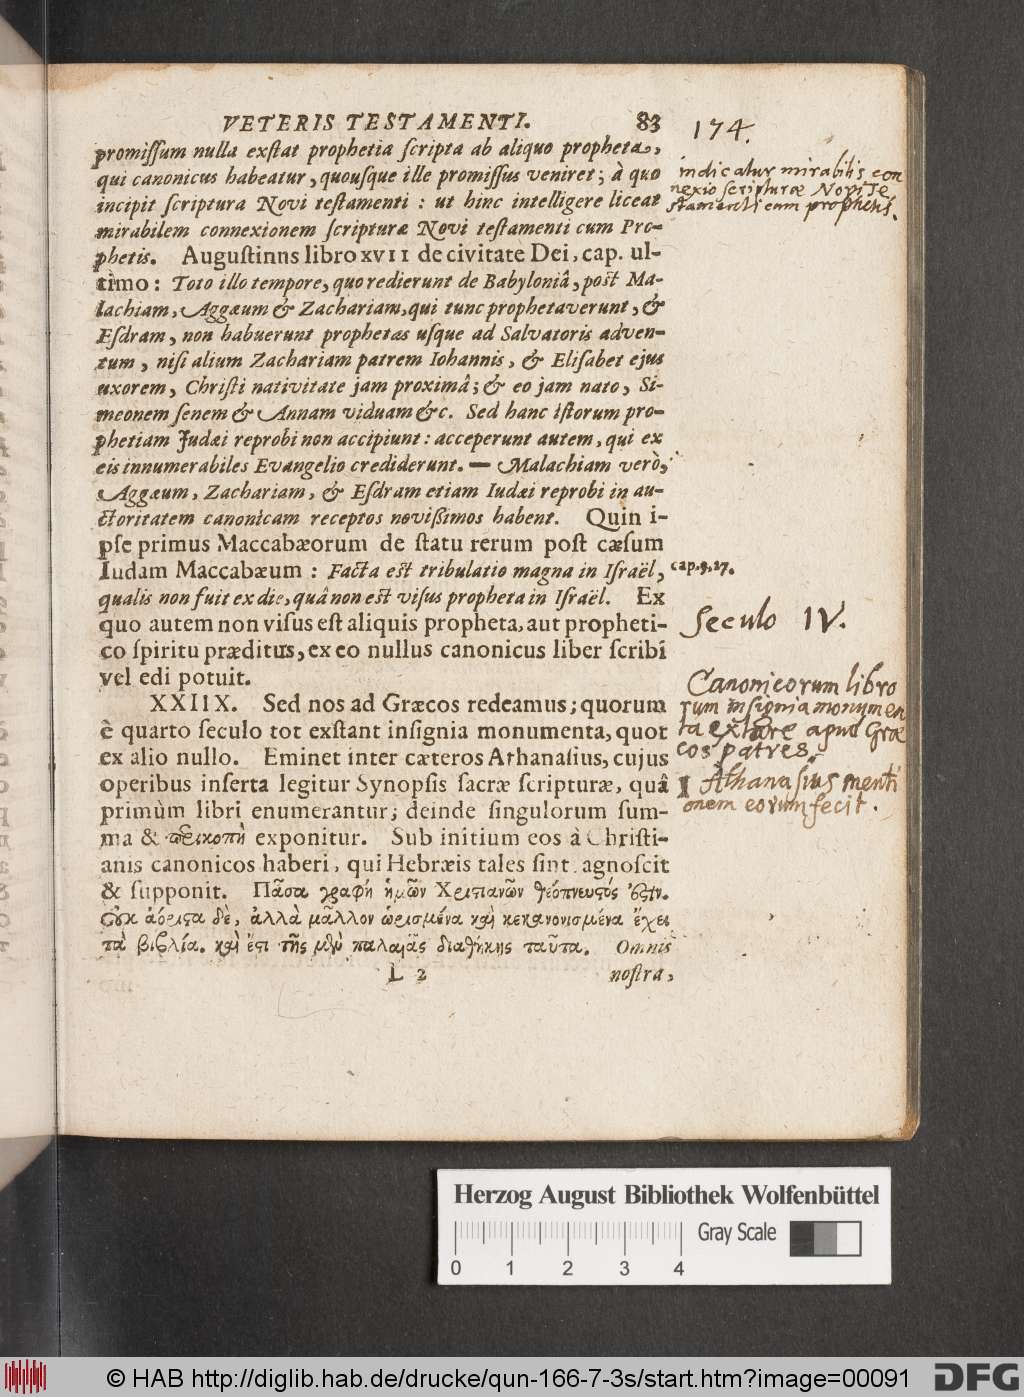 VETERIS TESTAMENTI. 83
174.
promissum nulla exstat prophetia scripta ab aliquo propheta,
qui canonicus habeatur, quousque ille promissus veniret; à quo
incipit scriptura Novi testamenti : ut hinc intelligere liceat
mirabilem connexionem scripturæ Novi testamenti cum Pro-
phetis. Augustinns libro XVII de civitate Dei, cap. ul-
timo: Toto illo tempore, quo redierunt de Babyloniâ, post Ma-
lachiam, Aggæum & Zachariam, qui tunc prophetaverunt, &
Esdram, non habuerunt prophetas usque ad Salvatoris adven-
tum, nisi alium Zachariam patrem Iohannis, & Elisabet ejus
uxorem, Christi nativitate jam proximâ; & eo jam nato, Si-
meonem senem & Annam viduam &c. Sed hanc istorum pro-
phetiam Judæi reprobi non accipiunt: acceperunt autem, qui ex
eis innumerabiles Evangelio crediderunt. — Malachiam verò,
Aggæum, Zachariam, & Esdram etiam Iudæi reprobi in au-
ctoritatem canonicam receptos novißimos habent. Quin i-
pse primus Maccabæorum de statu rerum post cæsum
Iudam Maccabæum : Facta est tribulatio magna in Israël,
qualis non fuit ex die, quâ non est visus propheta in Israël. Ex
quo autem non visus est aliquis propheta, aut propheti-
co spiritu præditus, ex eo nullus canonicus liber scribi
vel edi potuit.
XXIIX. Sed nos ad Græcos redeamus; quorum
è quarto seculo tot exstant insignia monumenta, quot
ex alio nullo. Eminet inter cæteros Athanasius, cujus
operibus inserta legitur Synopsis sacræ scripturæ, quâ
primùm libri enumerantur; deinde singulorum sum-
ma & περικοπὴ exponitur. Sub initium eos à Christi-
anis canonicos haberi, qui Hebræis tales sint, agnoscit
& supponit. Πᾶσα γραφὴ ἡμῶν Χριστιανῶν θεόπνευστός ἐστιν.
Οὐκ ἀόριστα δὲ, ἀλλὰ μᾶλλον ὡρισμένα καὶ κεκανονισμένα ἔχει
τὰ βιβλία. καὶ ἔστι τῆς μὲν παλαιᾶς διαθήκης ταῦτα. Omnis
L 2 nostra,
indicatur mirabilis con
nexio scripturæ Novi Te
stamenti cum prophetis.
cap. 9. 27.
Seculo IV.
Canonicorum libro
rum insignia monumen
ta extare apud Græ
cos patres.
1 Athanasius menti
onem eorum fecit.
Herzog August Bibliothek Wolfenbüttel
Gray Scale
0 1 2 3 4
© HAB http://diglib.hab.de/drucke/qun-166-7-3s/start.htm?image=00091
DFG